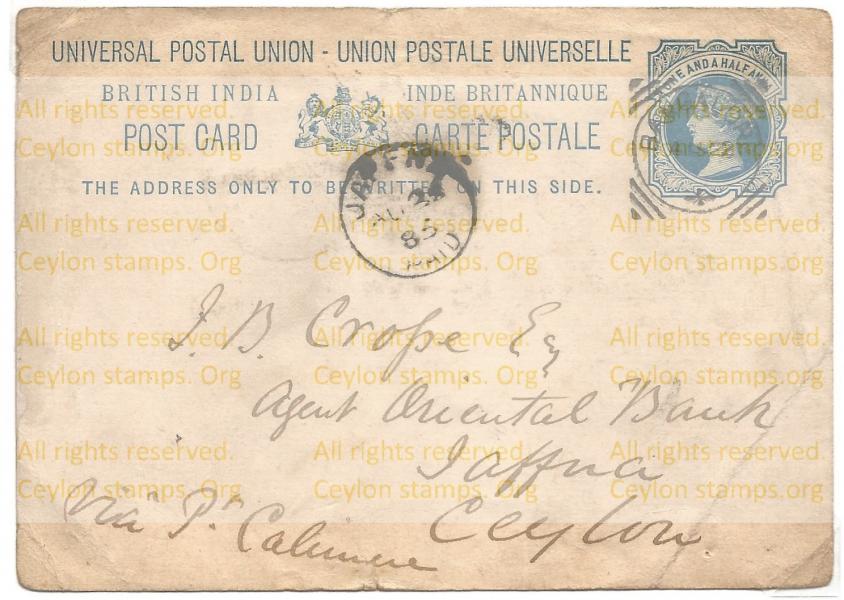 UNIVERSAL POSTAL UNION - UNION POSTALE UNIVERSELLE
BRITISH INDIA INDE BRITANNIQUE
POST CARD CARTE POSTALE
THE ADDRESS ONLY TO BE WRITTEN ON THIS SIDE.
ONE AND A HALF
JAFFNA
AU 24
85
PAID
J. B. Crope Esq
Agent Oriental Bank
Jaffna
Ceylon
Via Pt Calimere
All rights reserved. All rights reserved. All rights reserved.
Ceylon stamps. Org Ceylon stamps. Org Ceylon stamps.org
All rights reserved. All rights reserved. All rights reserved.
Ceylon stamps. Org Ceylon stamps. Org Ceylon stamps.org
All rights reserved. All rights reserved. All rights reserved.
Ceylon stamps. Org Ceylon stamps. Org Ceylon stamps.org
All rights reserved. All rights reserved. All rights reserved.
Ceylon stamps. Org Ceylon stamps. Org Ceylon stamps.org